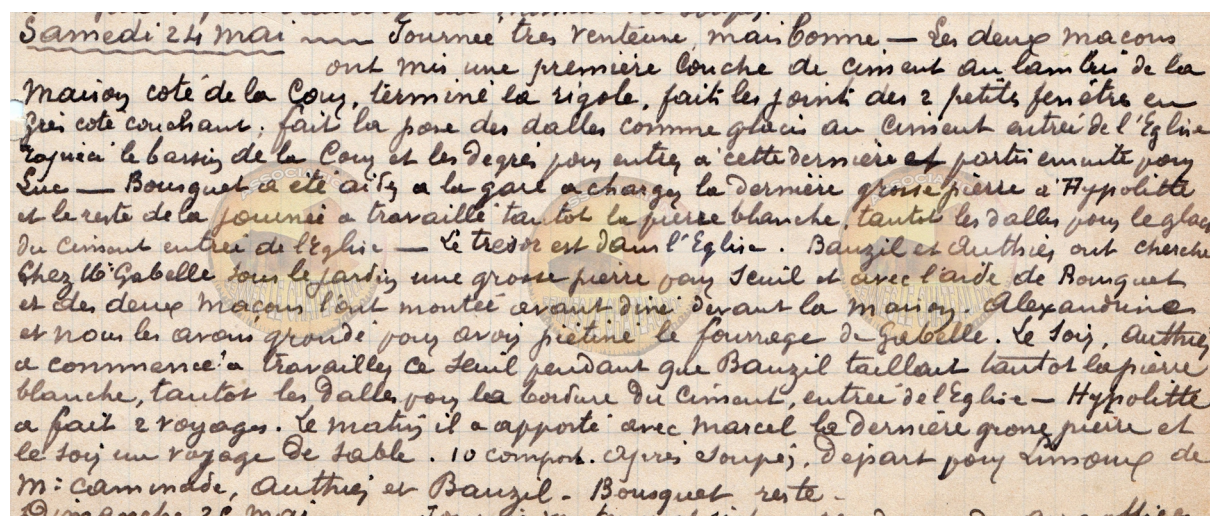 Samedi 24 Mai — Journée très venteuse, mais bonne — Les deux macons
ont mis une première couche de ciment au lambris de la
maison coté de la Cour, terminé la rigole, faits les joints des 2 petites fenêtre en
grès coté couchant, fait la pose des dalles comme glacis au ciment entrée de l'Eglise
le bassin de la Cour et les degrés pour entrer à cette dernière et partis ensuite pour
Luc — Bousquet a été aider a la gare a charger la dernière grosse pierre a Hypolitte
et le reste de la journée a travaillé tantot la pierre blanche, tantot les dalles pour le glacis
du ciment entrée de l'Eglise — Le trésor est dans l'Eglise. Bauzil et Authier ont cherché
Chez Mr Gabelle sous le jardin une grosse pierre pour seuil et avec l'aide de Bousquet
et des deux maçons l'ont montée avant diné devant la maison. Alexandrine
et nous les avons grondé pour avoir piétiné le fourrage de Gabelle. Le Soir, Authier
a commencé a travailler ce seuil pendant que Bauzil taillait tantot la pierre
blanche, tantot les dalles pour la bordure du ciment, entrée de l'Eglise — Hypolitte
a fait 2 voyages. Le matin il a apporté avec Marcel la dernière grosse pierre et
le soir un voyage de sable. 10 comport. Après souper, Départ pour Limoux de
M: Caminade, Authier et Bauzil - Bousquet reste -
Dimanche 25 Mai